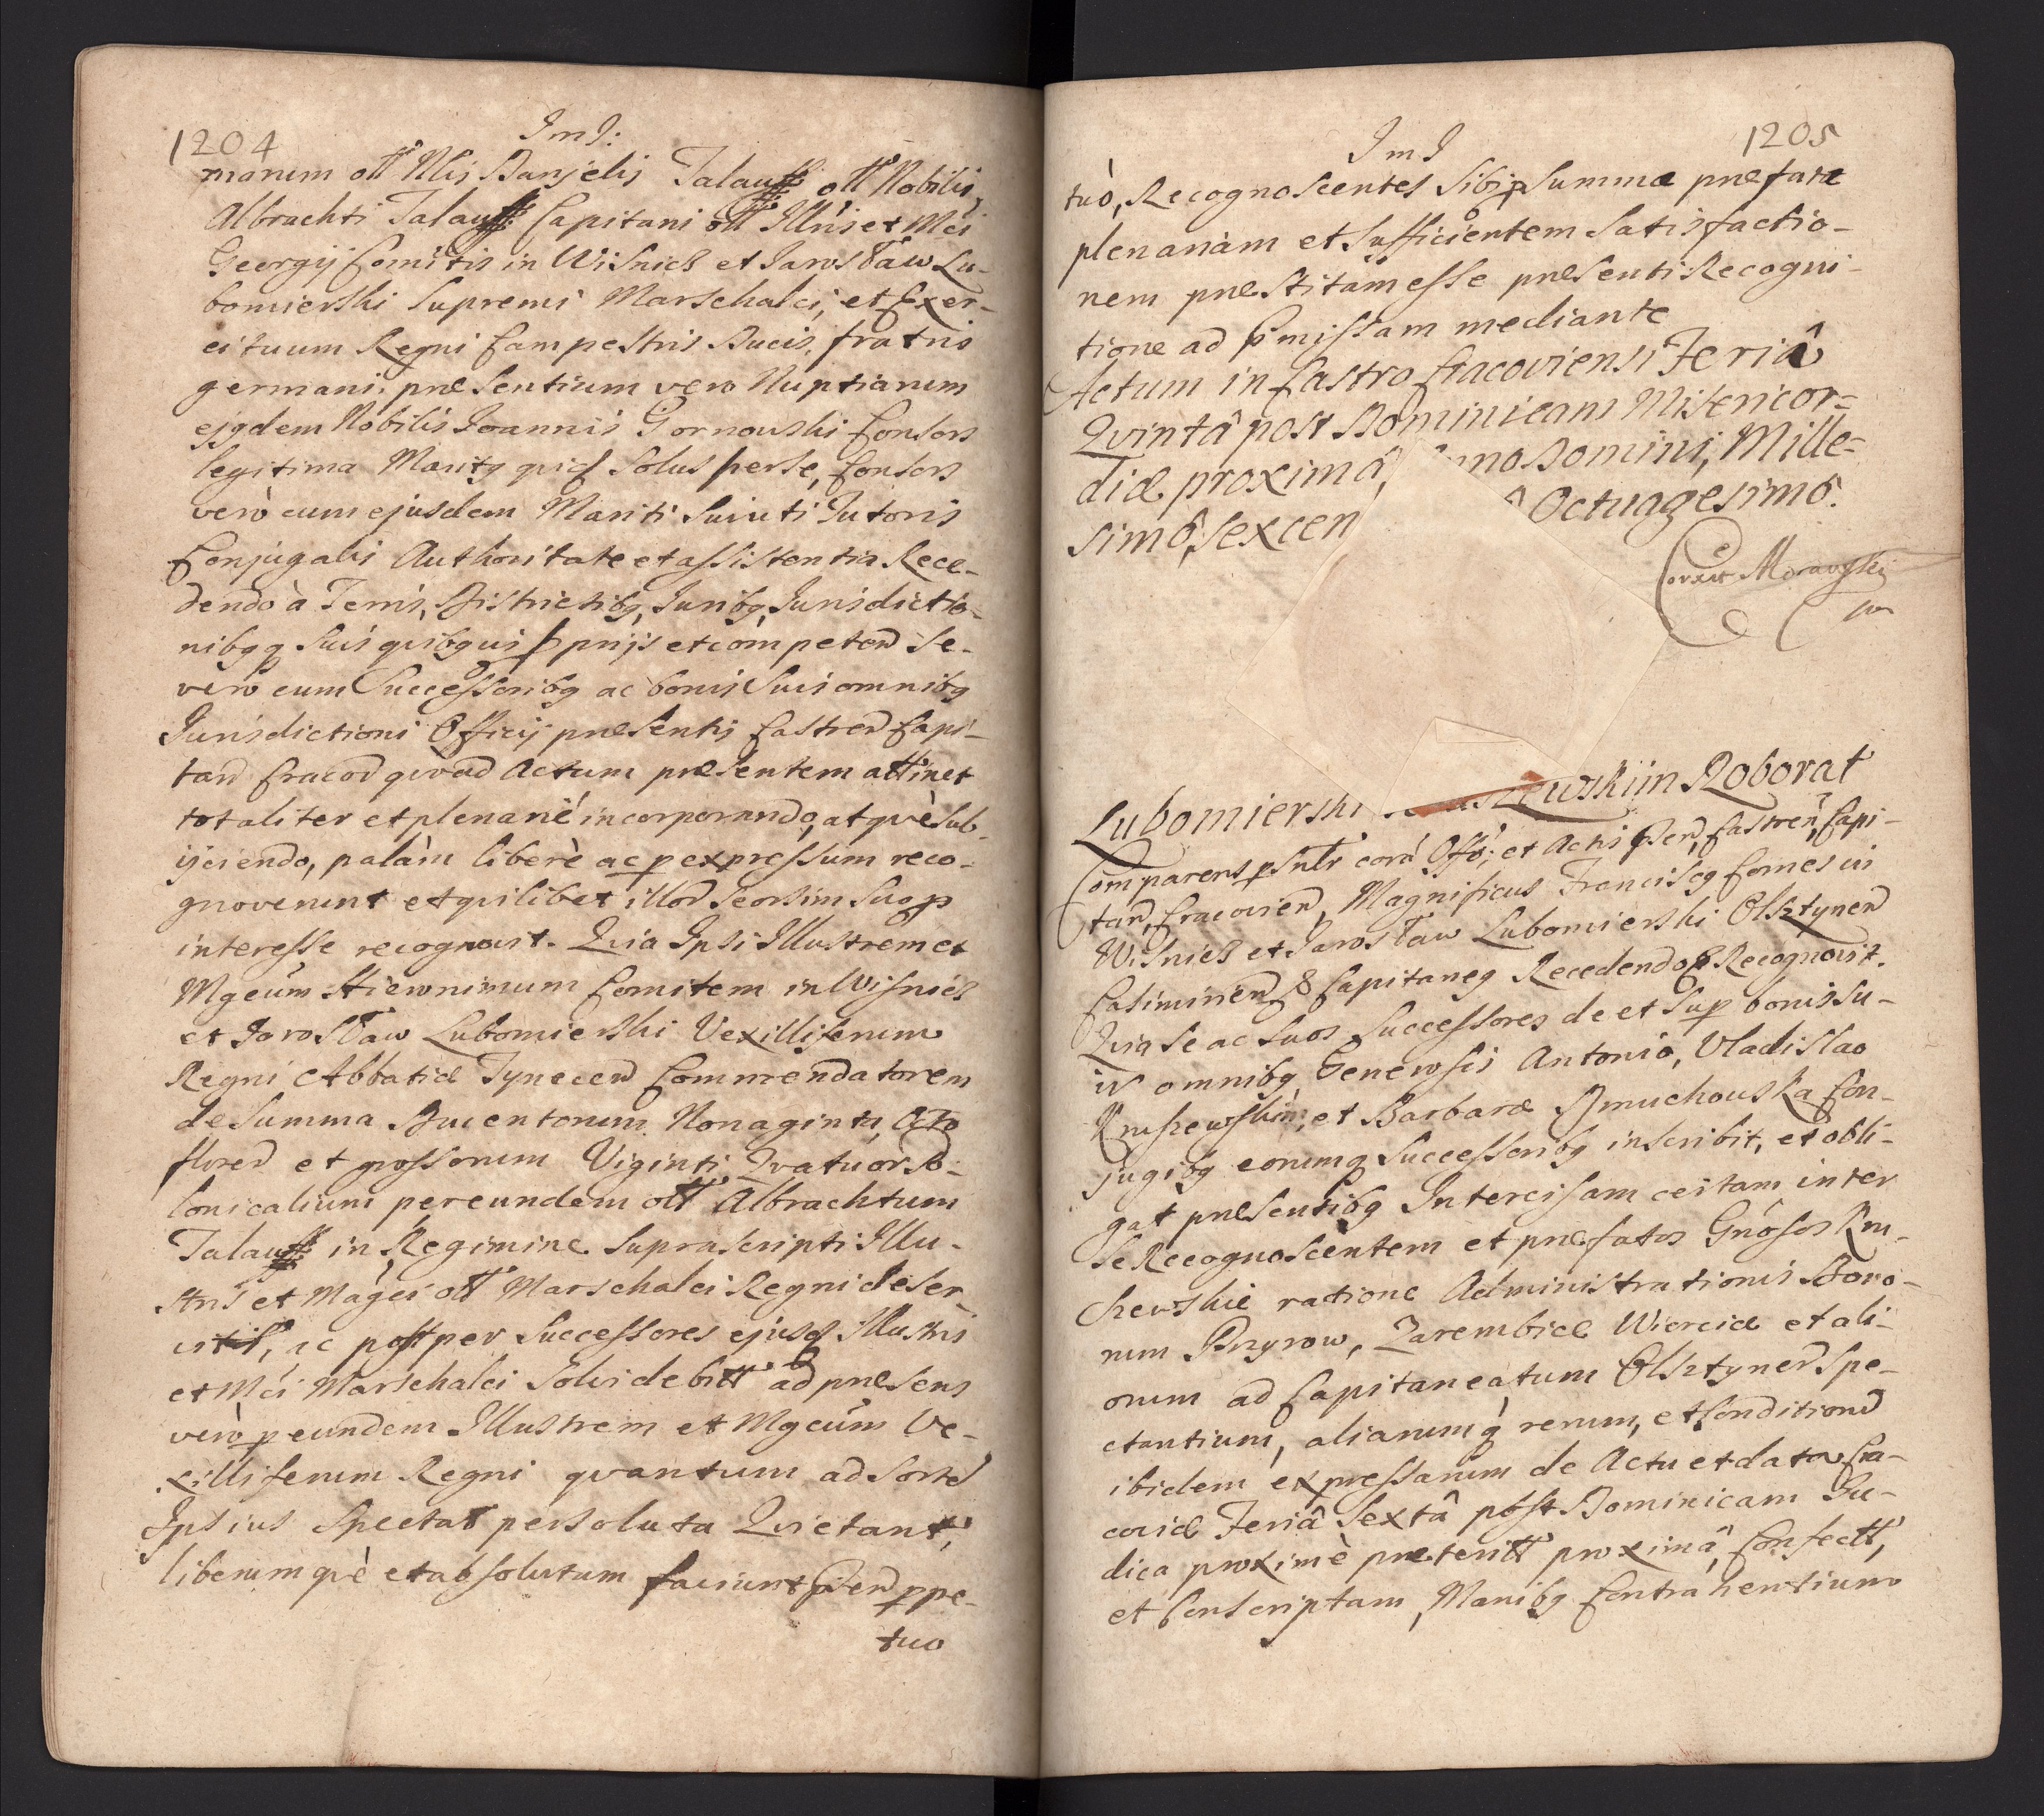 1204
ImI:
marum oll Nlis Danjelis Talauff oll Nobilis
Albrachti Talauff Capitani oll Illris et Mci
Georgij Comitis in Wisnicz et Jarosław Lu-
bomierski Supremi Marschalci, et Exer-
cituum Regni Campestris Ducis, fratris
germani, præsentium vero Nuptiarum
ejqdem Nobilis Joannis Gornouski Consors
legitima Maritq quid solus per se, Consors
verò cum ejusdem Mariti sui uti Tutoris
Conjugali Authoritate et assistentia Rece-
dendo à Terris, Districtibq, Juribq, Jurisdictio-
nibqq suis quibquis pprijs et competen se-
vero cum Successoribq ac bonis suis omnibq
Jurisdictioni Officij præsentis Castren Capi-
tan Cracov quoad Actum præsentem attinet
totaliter et plenariè incorporando, atquè sub-
ijciendo, palàm liberè ac p expressum reco-
gnoverunt et quilibet illor seorsim suo p
interesse recognovit. Qvia Ipsi Illustrem et
Mgcum Hieronimum Comitem in Wisnicz
et Jarosław Lubomierski Vexilliferum
Regni Abbatiæ Tynecen Commendatorem
de summa Ducentorum Nonaginta Octo
floren et grossorum Viginti Qvatuor Po-
lonicalium per eundem oll Albrachtum
Talauff in Regimine suprascripti Illu-
stris et Magci oll Marschalci Regni deser-
vitis, ac post per Successores ejusd Illustris
et Mci Marschalci solvi debitt ad præsens
verò p eundem Illustrem et Mgcum Ve-
xilliferum Regni quantum ad sortem
Ipsius spectat persoluta Qvietant,
liberumquè et absolutum faciunt ppe-
tuo
ImI
1205
tuò, Recognoscentes sibi p Summa præfata
plenariam et sufficientem satisfactio-
nem præstitam esse præsenti Recogni-
tione ad præmissam mediante
Actum in Castro Cracoviensi Feriâ
Qvintâ post Dominicam Misericor-
diæ proximâ, Anno Domini, Mille-
simô, Sexcen ô Octuagesimô.
Correxit Morawski
Lubomierski szewskiin Roborat
Comparens psnltr corá Offo, et Actis Castren, Capi-
tan, Cracovien, Magnificus Franciscq Comes in
Wisnicz et Jarosław Lubomierski Olsztynen
Casimirien & Capitaneq Recedendo & Recognovit.
Qvia se ac suos Successores de et sup bonis su-
is omnibq Generosis Antonio, Vladislao
Kruszewskim, et Barbaræ Dmuchouska Con-
jugibq eorumq Successoribq inscribit, et obli-
gat præsentibq Intercisam certam inter
se Recognoscentem et præfatos Gnosos Kru-
szewskie ratione Administrationis Bono-
rum Przyrow, Zarembice Wiercie et ali-
orum ad Capitaneatum Olsztynen spe-
ctantium, aliarumq rerum, et Condition
ibidem expressarum de Actu et data Cra-
coviæ Feriâ Sextâ post Dominicam Ju-
dica proximè præteritt proximâ, Confectt,
et Conscriptam, Manibq Contrahentium